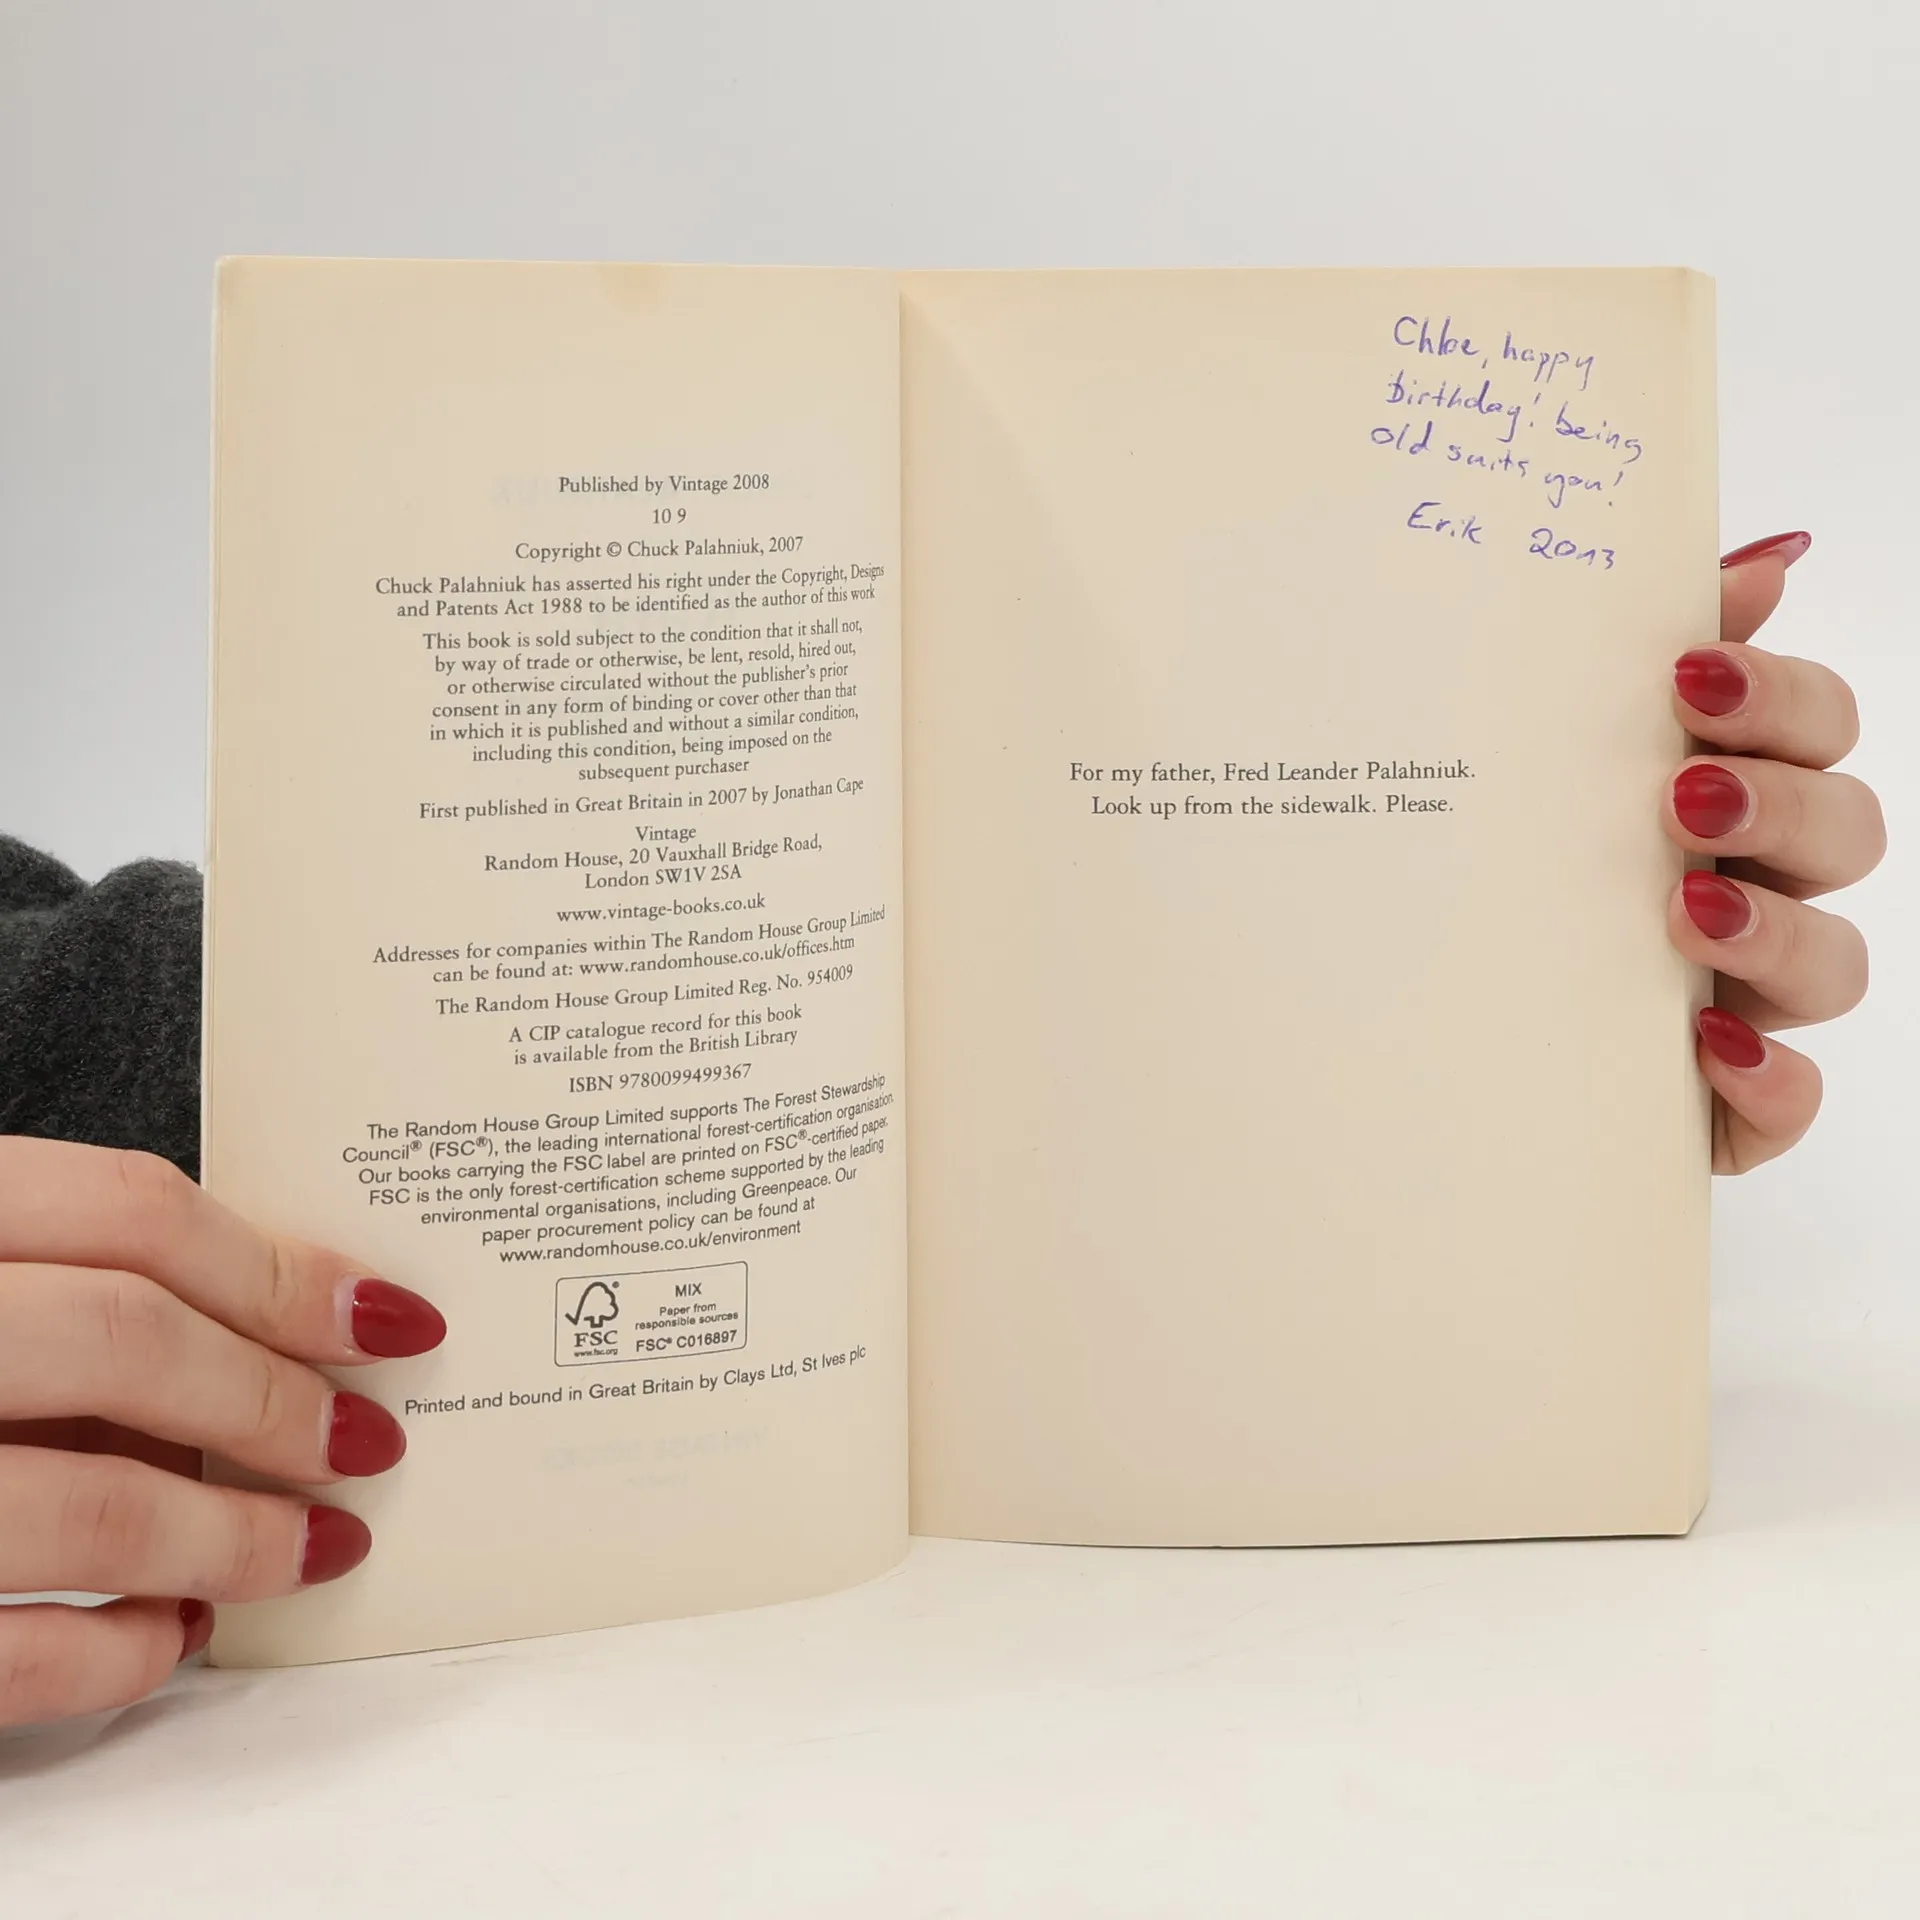 Published by Vintage 2008
10 9
Copyright © Chuck Palahniuk, 2007
Chuck Palahniuk has asserted his right under the Copyright, Designs
and Patents Act 1988 to be identified as the author of this work
This book is sold subject to the condition that it shall not,
by way of trade or otherwise, be lent, resold, hired out,
or otherwise circulated without the publisher's prior
consent in any form of binding or cover other than that
in which it is published and without a similar condition,
including this condition, being imposed on the
subsequent purchaser
First published in Great Britain in 2007 by Jonathan Cape
Vintage
Random House, 20 Vauxhall Bridge Road,
London SW1V 2SA
www.vintage-books.co.uk
Addresses for companies within The Random House Group Limited
can be found at: www.randomhouse.co.uk/offices.htm
The Random House Group Limited Reg. No. 954009
A CIP catalogue record for this book
is available from the British Library
ISBN 9780099499367
The Random House Group Limited supports The Forest Stewardship
Council® (FSC®), the leading international forest-certification organisation.
Our books carrying the FSC label are printed on FSC®-certified paper.
FSC is the only forest-certification scheme supported by the leading
environmental organisations, including Greenpeace. Our
paper procurement policy can be found at
www.randomhouse.co.uk/environment
FSC
www.fsc.org
MIX
Paper from
responsible sources
FSC® C016897
Printed and bound in Great Britain by Clays Ltd, St Ives plc
Chloe, happy
birthday! being
old suits you!
Erik 2013
For my father, Fred Leander Palahniuk.
Look up from the sidewalk. Please.